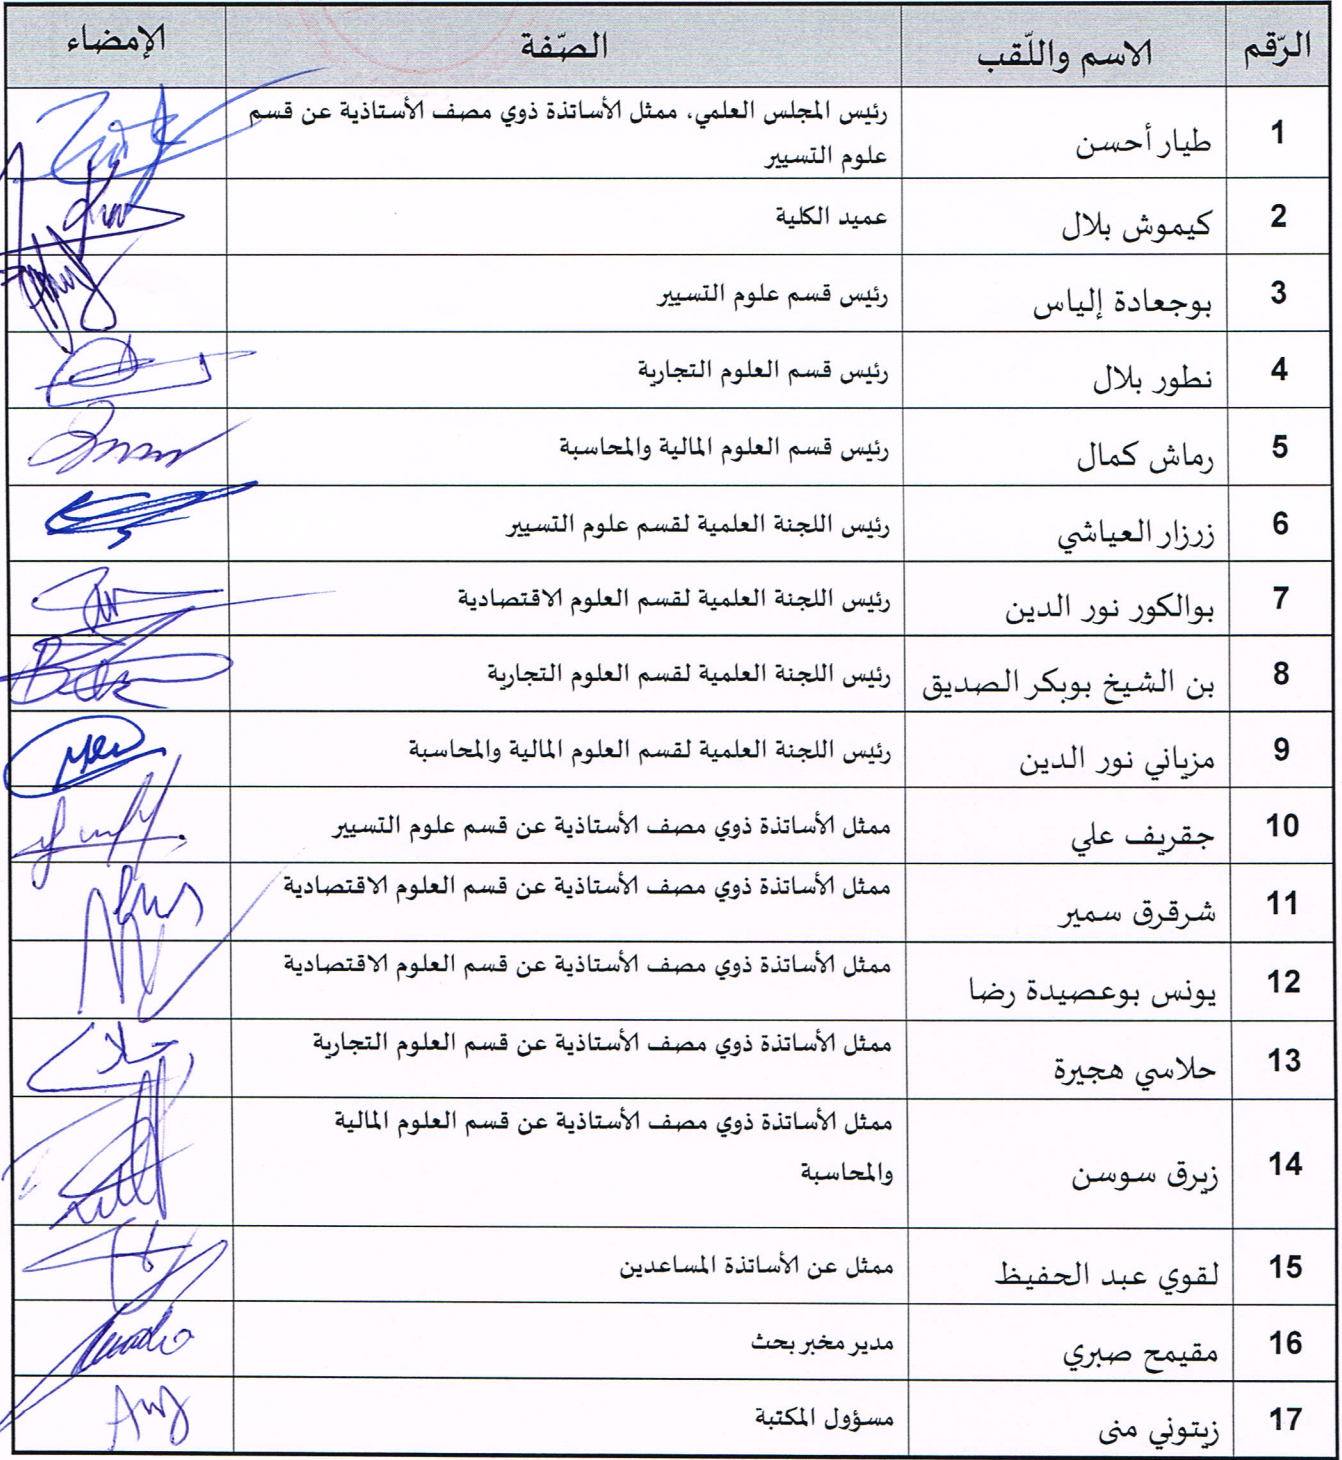 الرّقم الاسم واللّقب الصّفة الإمضاء
1 طيار أحسن رئيس المجلس العلمي، ممثل الأساتذة ذوي مصف الأستاذية عن قسم
علوم التسيير
2 كيموش بلال عميد الكلية
3 بوجعادة إلياس رئيس قسم علوم التسيير
4 نطور بلال رئيس قسم العلوم التجارية
5 رماش كمال رئيس قسم العلوم المالية والمحاسبة
6 زرزار العياشي رئيس اللجنة العلمية لقسم علوم التسيير
7 بوالكور نور الدين رئيس اللجنة العلمية لقسم العلوم الاقتصادية
8 بن الشيخ بوبكر الصديق رئيس اللجنة العلمية لقسم العلوم التجارية
9 مزياني نور الدين رئيس اللجنة العلمية لقسم العلوم المالية والمحاسبة
10 جقريف علي ممثل الأساتذة ذوي مصف الأستاذية عن قسم علوم التسيير
11 شرقرق سمير ممثل الأساتذة ذوي مصف الأستاذية عن قسم العلوم الاقتصادية
12 يونس بوعصيدة رضا ممثل الأساتذة ذوي مصف الأستاذية عن قسم العلوم الاقتصادية
13 حلاسي هجيرة ممثل الأساتذة ذوي مصف الأستاذية عن قسم العلوم التجارية
14 زيرق سوسن ممثل الأساتذة ذوي مصف الأستاذية عن قسم العلوم المالية
والمحاسبة
15 لقوي عبد الحفيظ ممثل عن الأساتذة المساعدين
16 مقيمح صبري مدير مخبر بحث
17 زيتوني منى مسؤول المكتبة